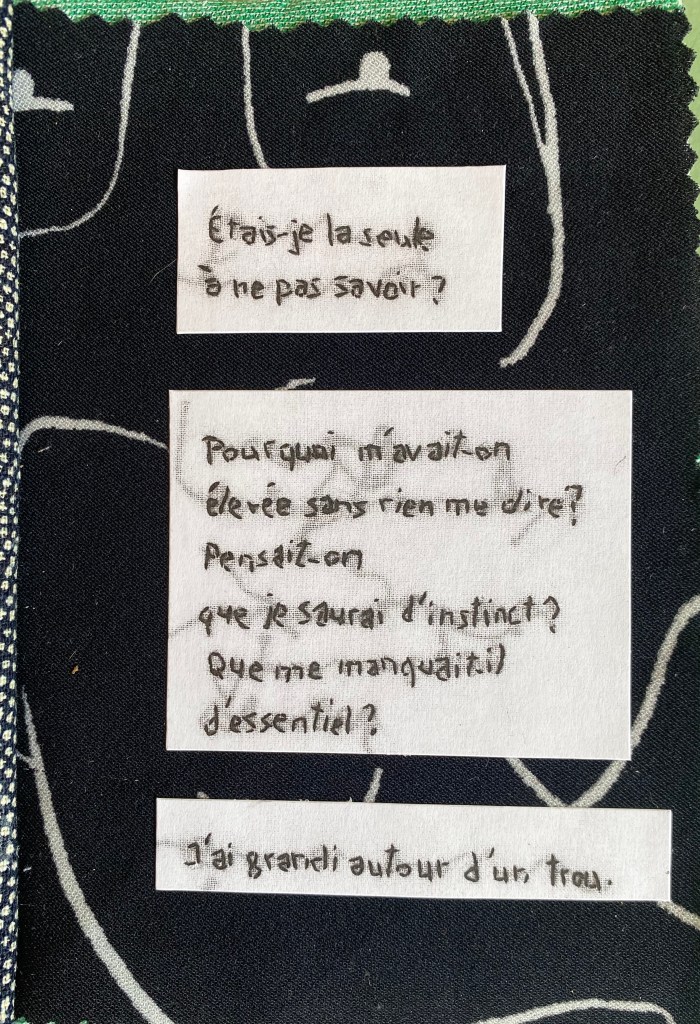 Étais-je la seule
à ne pas savoir ?
Pourquoi m'avait-on
élevée sans rien me dire ?
Pensait-on
que je saurai d'instinct ?
Que me manquait-il
d'essentiel ?
J'ai grandi autour d'un trou.